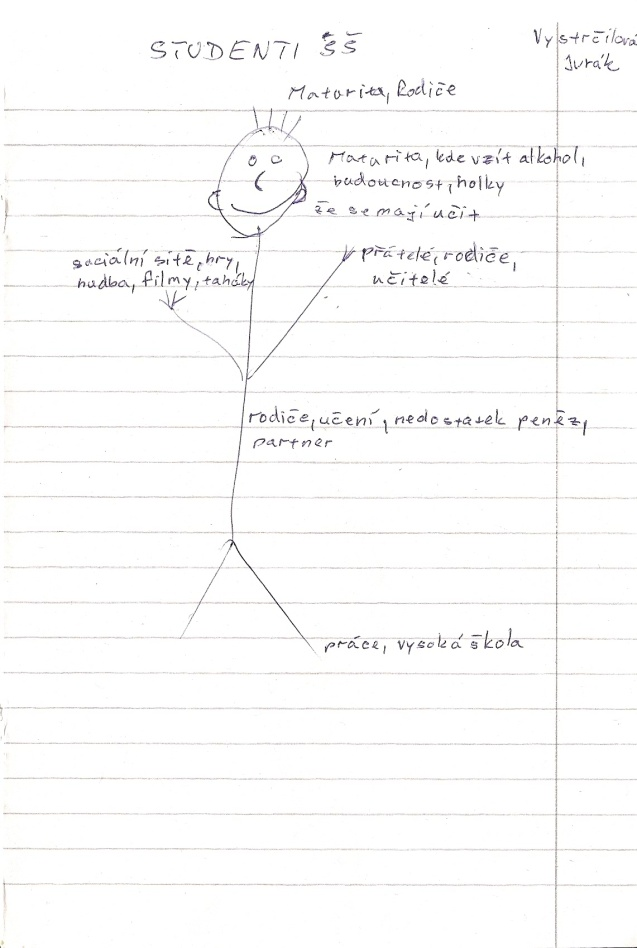 STUDENTI SŠ
Vystrčilová
Jurák
Maturita, Rodiče
Maturita, kde vzít alkohol,
budoucnost, holky
že se mají učit
sociální sítě, hry,
hudba, filmy, taháky
přátelé, rodiče,
učitelé
rodiče, učení, nedostatek peněz,
partner
práce, vysoká škola